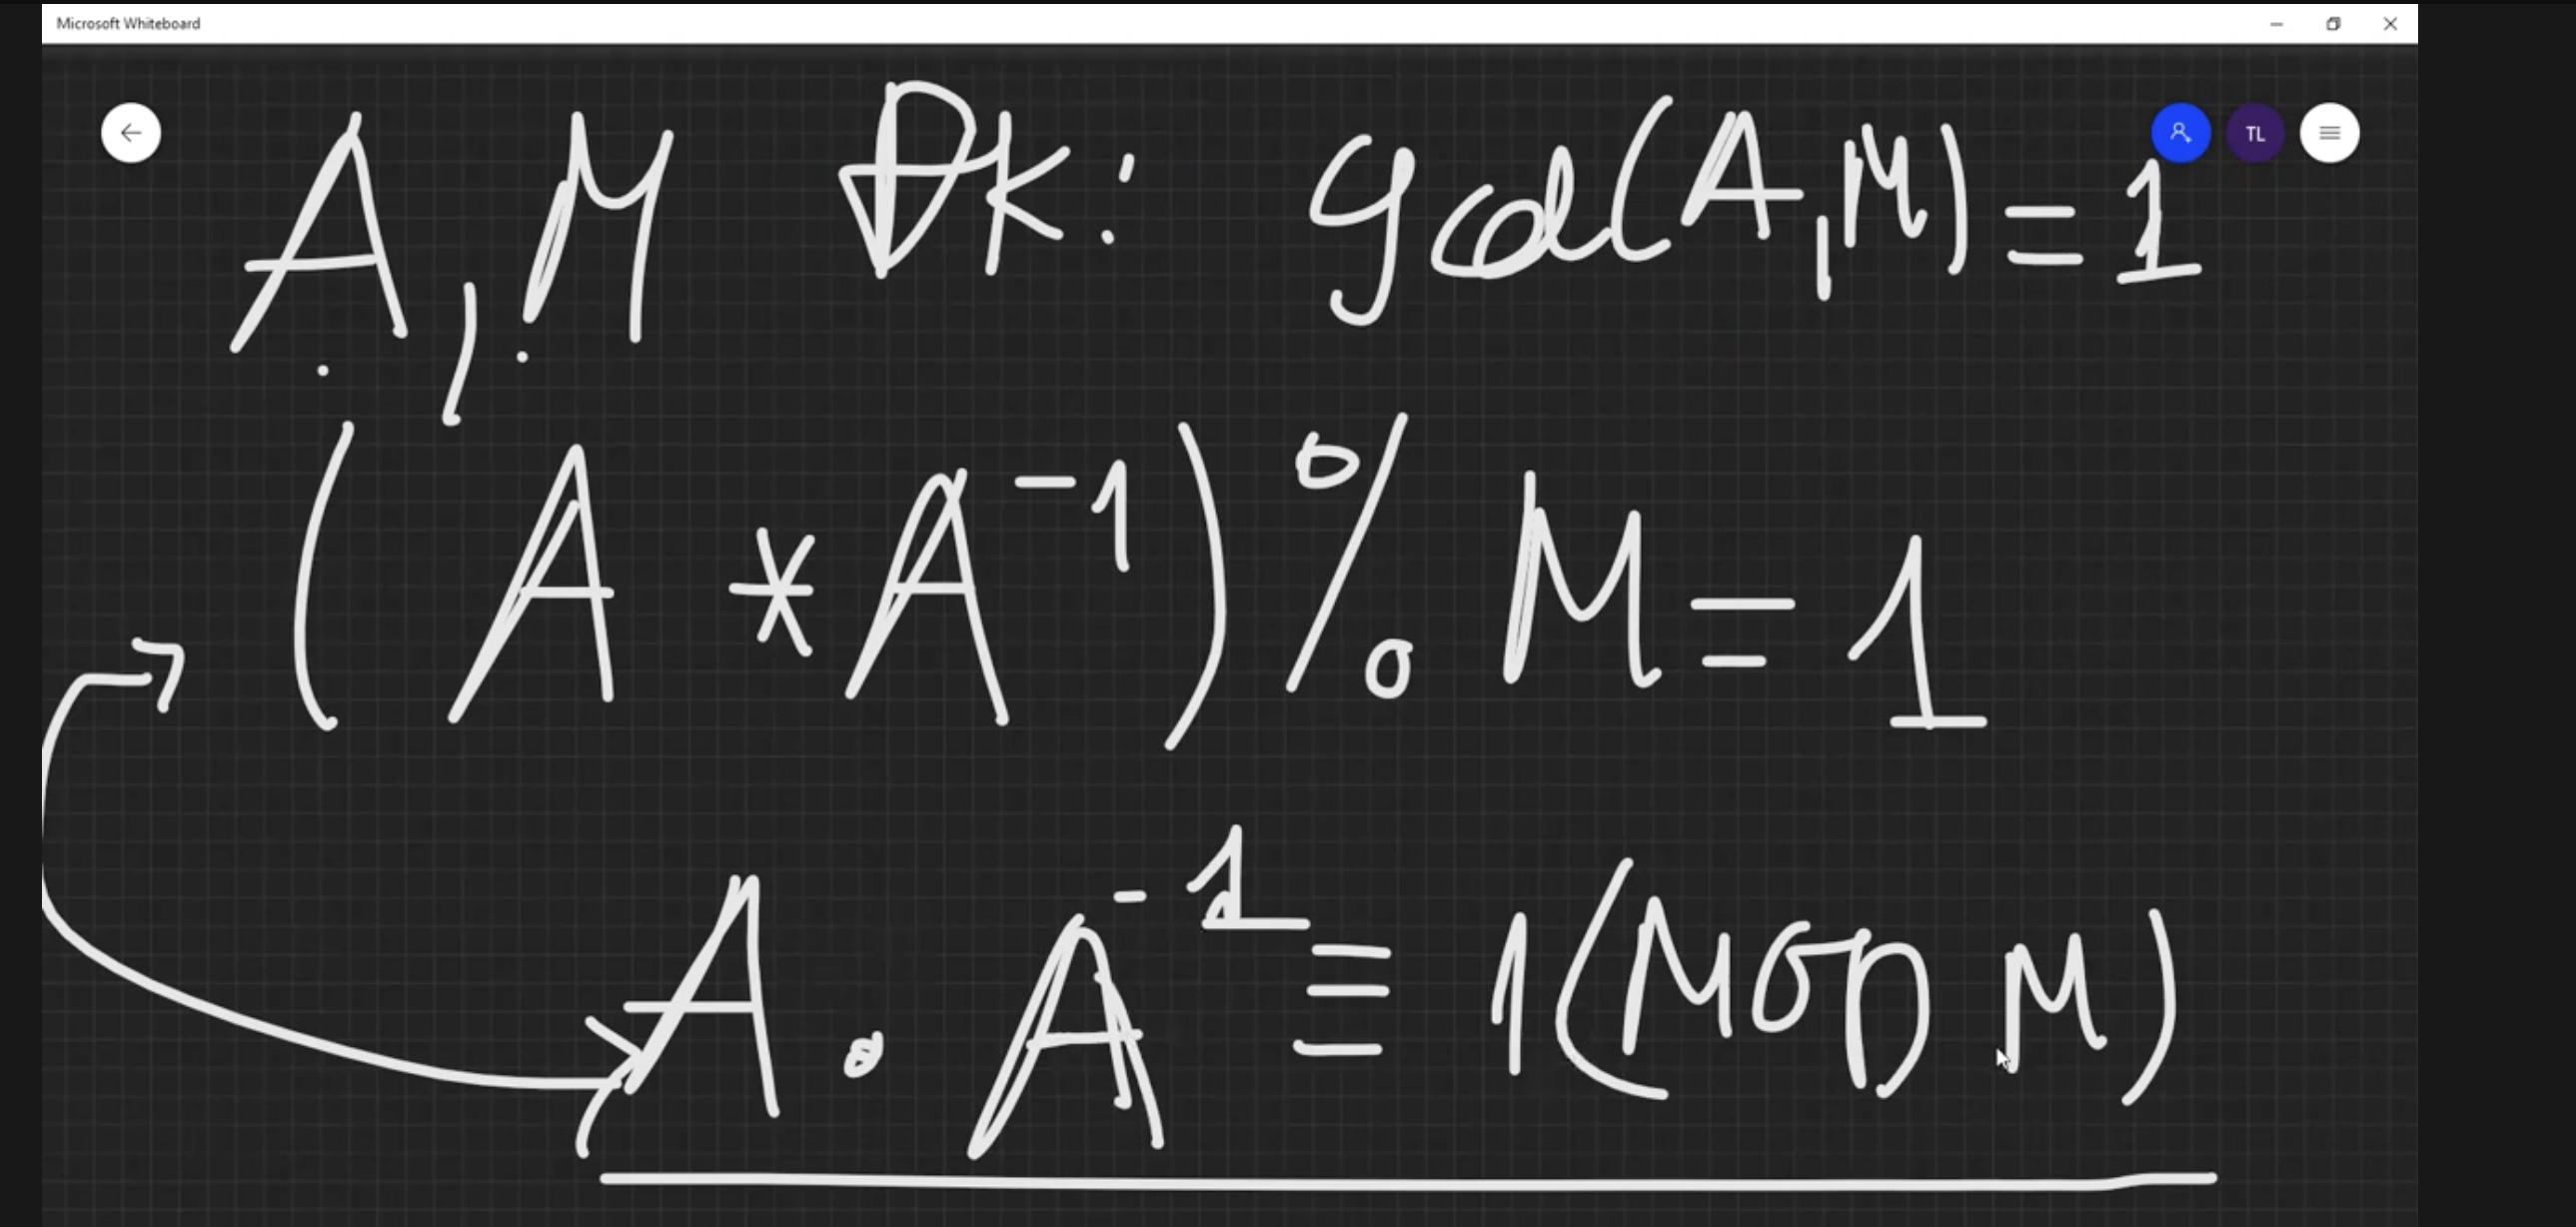 Microsoft Whiteboard
TL
A, M ĐK: gcd(A, M) = 1
(A * A⁻¹) % M = 1
A . A⁻¹ ≡ 1 (MOD M)